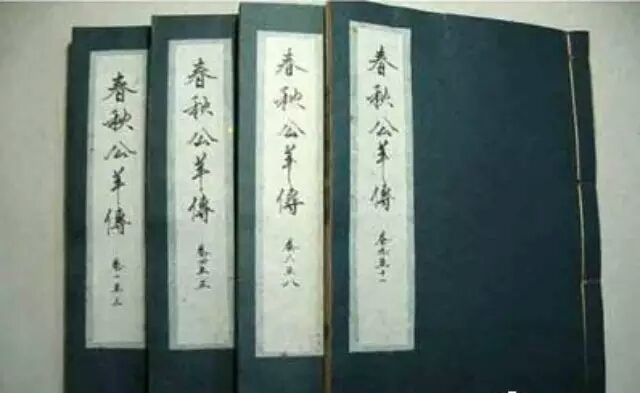 春秋公羊傳
卷一至三
春秋公羊傳
卷四至五
春秋公羊傳
卷六至八
春秋公羊傳
卷九至十一